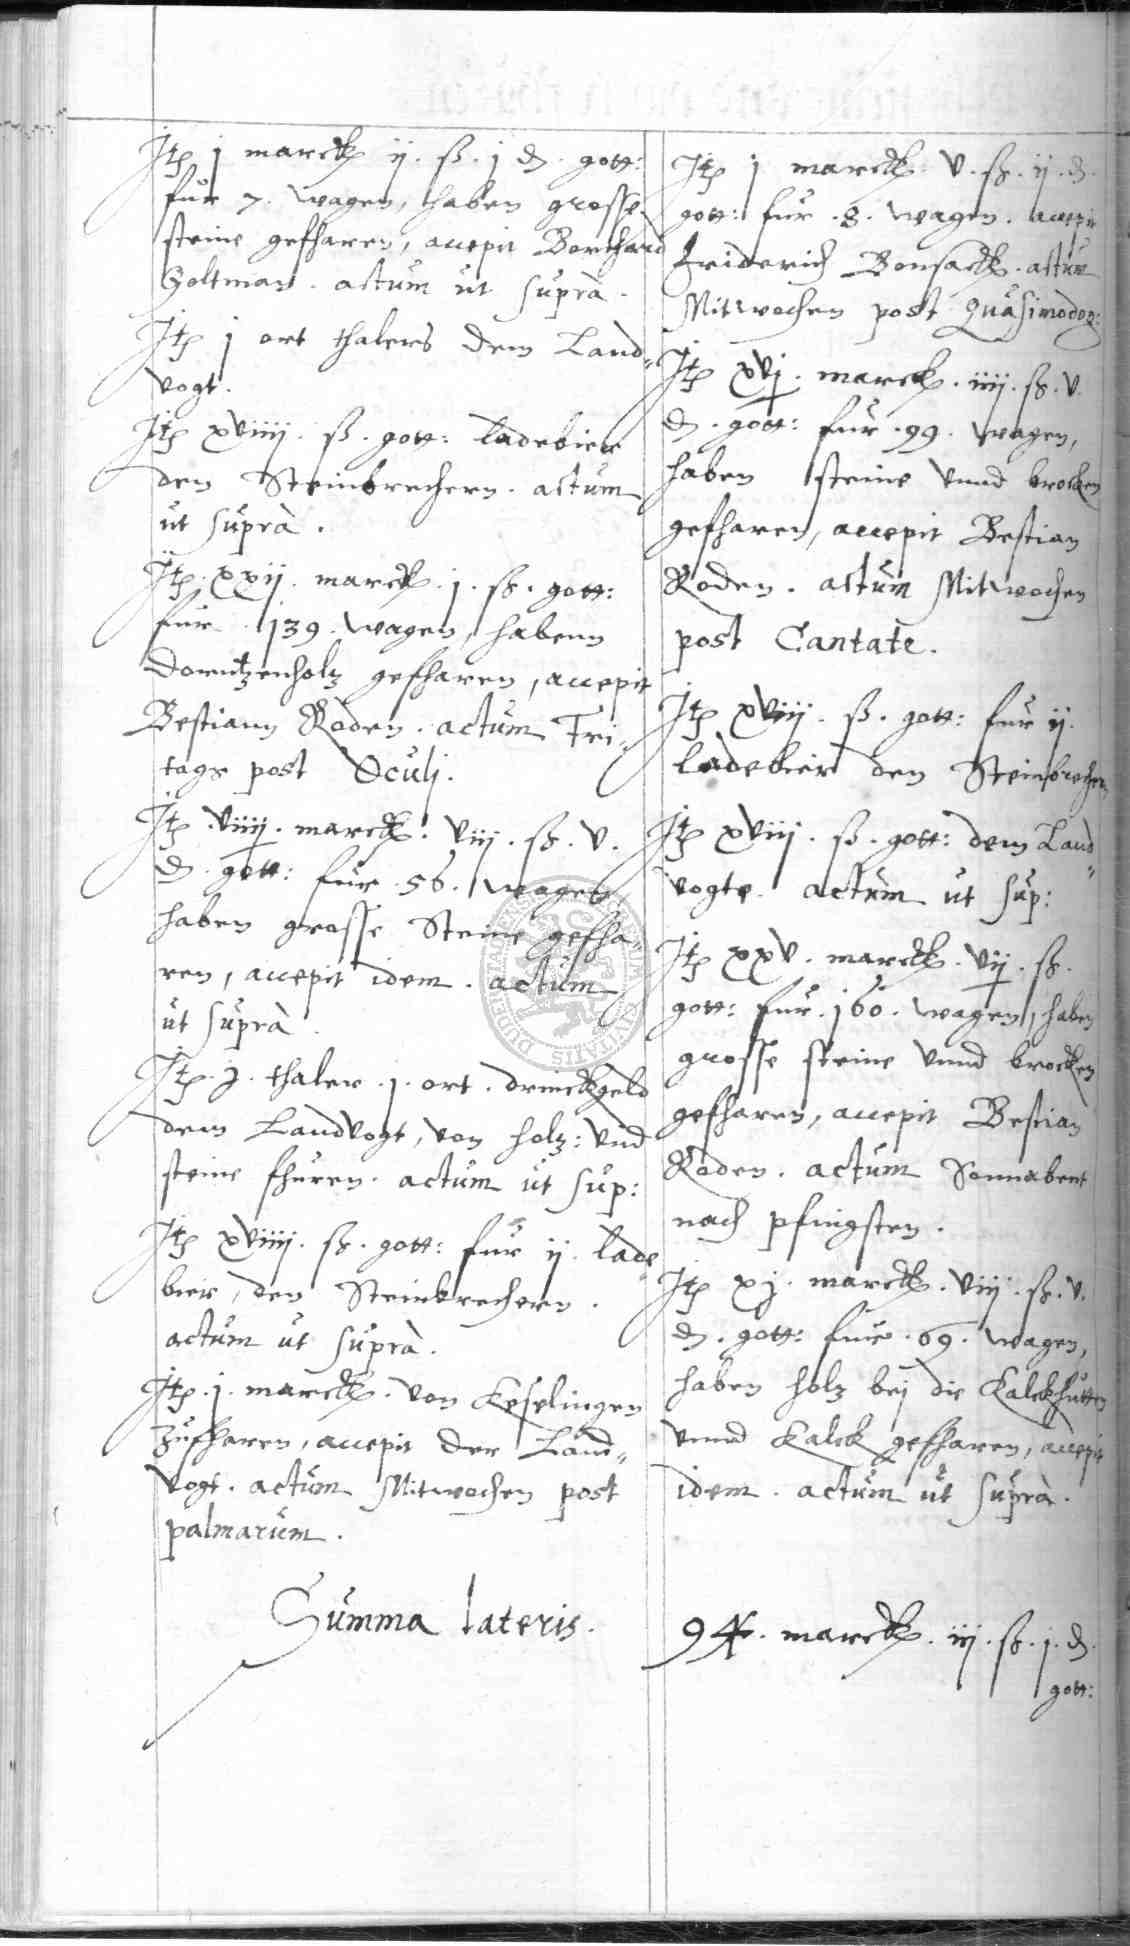 Itp j marck ij. ß. j d. gott:
fur 7. wagen, haben grosse
steine gefharen, accepit Borchard
Holtman. actum ut supra.
Itp j ort thalers dem Land=
vogt.
Itp xviiij. ß. gott: ladebier
den Steinbrechern. actum
ut supra.
Itp. xxij. marck. j. ß. gott:
fur 139. wagen, habenn
Dorntzenholtz gefharen, accepit
Bestiann Roden. actum Fri,
tags post Oculj.
Itp viiij. marck. viij. ß. v.
d. gott: fur .56. wagen
haben grosse Steine gefha=
ren, accepit idem. actum
ut supra.
Itp. j. thaler .j. ort. drinckgeld
dem Landvogt, von holtz: und
steine fhuren. actum ut sup:
Itp xviiij. ß. gott: fur ij. lade=
bier, den Steinbrechern.
actum ut supra.
Itp .j. marck. von Keselingen
zufharen, accepit der Land=
vogt. actum Mitwochen post
palmarum.
Itp j marck. v. ß. ij. d.
gott: fur .8. wagen. accepit
Friderich Bonsack. actum
Mitwochen post Quasimodog:
Itp xvj. marck. iiij. ß. v.
d. gott: fur .99. wagen,
haben steine unnd brocken
gefharen, accepit Bestian
Roden. actum Mitwochen
post Cantate.
Itp xviij. ß. gott: fur ij.
ladebier den Steinbrechern
Itp xviij. ß. gott: dem Land=
vogte. actum ut sup:
Itp xxv. marck. vij. ß.
gott: fur .160. wagen, haben
grosse steine unnd brocken
gefharen, accepit Bestian
Roden. actum Sonnabent
nach pfingsten.
Itp xj. marck. viij. ß. v.
d. gott: fur .69. wagen,
haben holtz bej die Kalckhutten
unnd Kalck gefharen, accepit
idem. actum ut supra.
Summa lateris. 94. marck. iij. ß. j. d.
gott: